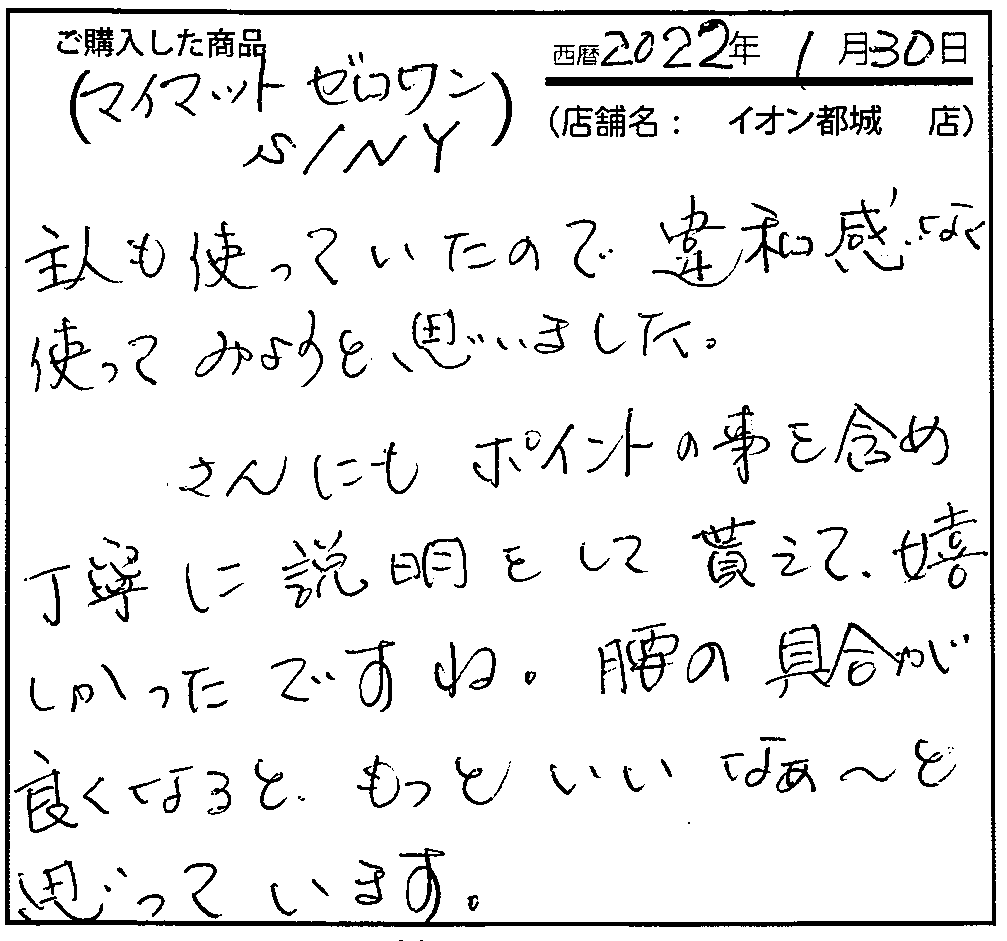 ご購入した商品
西暦2022年 1月30日
(マイマット ゼロワン)
S/NY
(店舗名： イオン都城 店)
主人も使っていたので違和感なく
使ってみようと思いました。
さんにも ポイントの事を含め
丁寧に説明をして貰えて、嬉
しかったですね。腰の具合が
良くなると、もっといいなぁ～と
思っています。